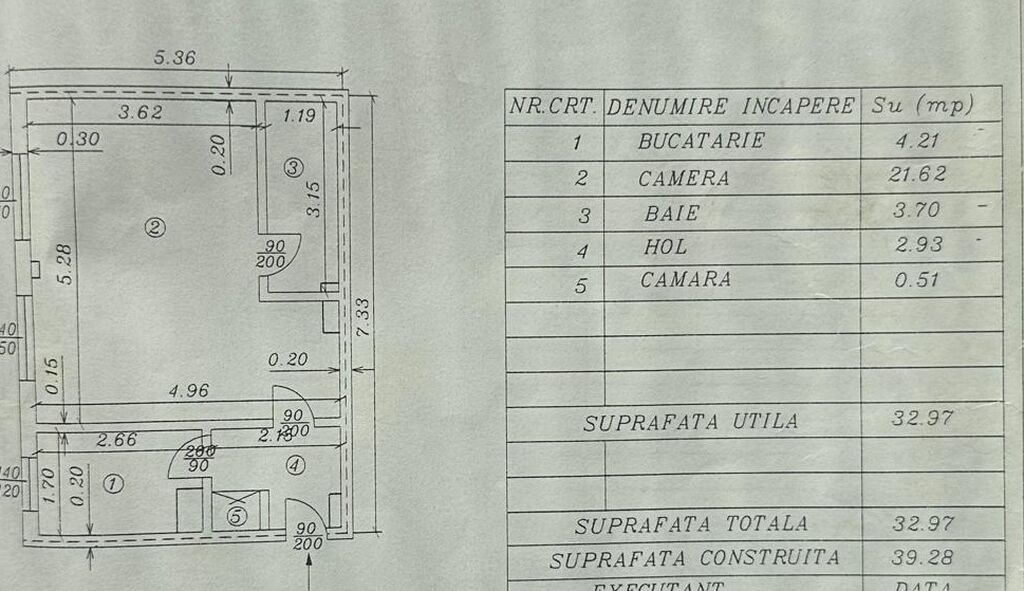 5.36
3.62
1.19
0.30
0.20
3
3.15
2
90
200
5.28
7.33
0.20
0.15
4.96
90
200
2.66
200
90
1.70
0.20
1
4
5
90
200
NR.CRT. DENUMIRE INCAPERE Su (mp)
1 BUCATARIE 4.21
2 CAMERA 21.62
3 BAIE 3.70
4 HOL 2.93
5 CAMARA 0.51
SUPRAFATA UTILA 32.97
SUPRAFATA TOTALA 32.97
SUPRAFATA CONSTRUITA 39.28
EXECUTANT DATA